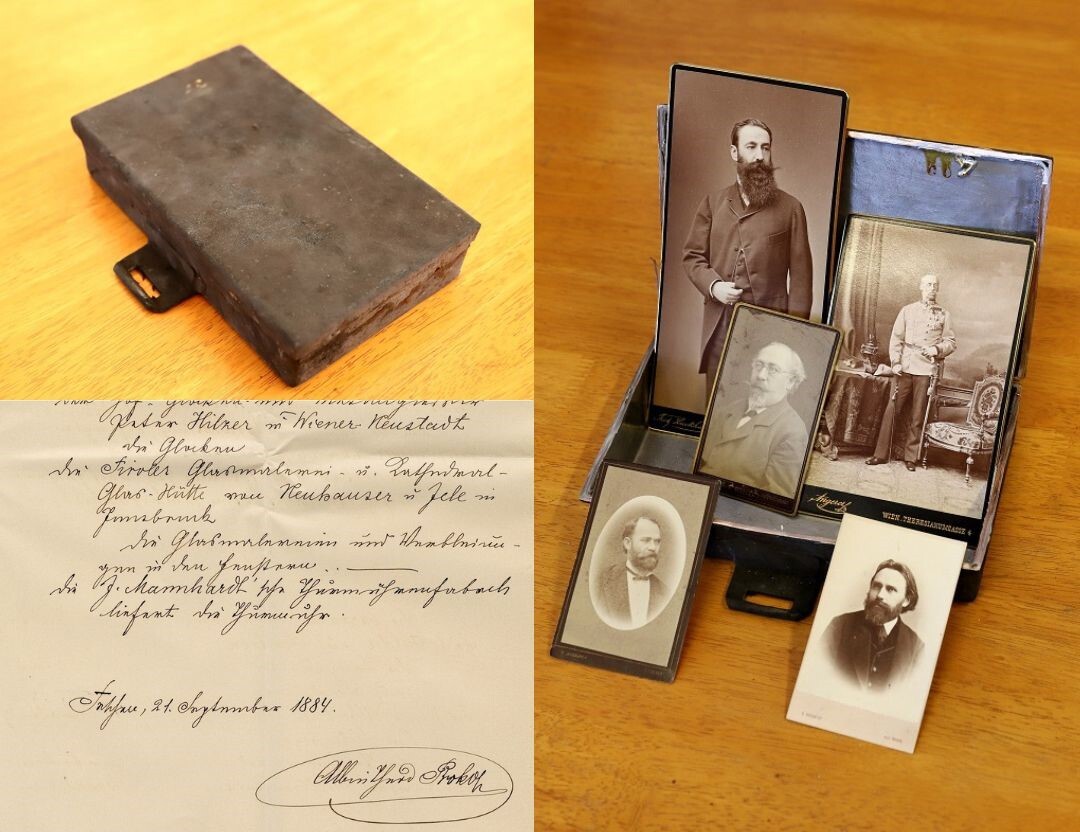 Peter Hilzer in Wiener-Neustadt
die Glocken
die Tiroler Glasmalerei- u. Cathedral-
Glas-Hütte von Neuhauser u Jele in
Innsbruck
die Glasmalereien und Verbleiun-
gen in den Fenstern..
die J. Mannhardt'sche Thurmuhrenfabrik
liefert die Thurmuhr.
Teschen, 21. September 1884.
Albin Theod Prokop
Angerer
WIEN, THERESIANUMGASSE 4